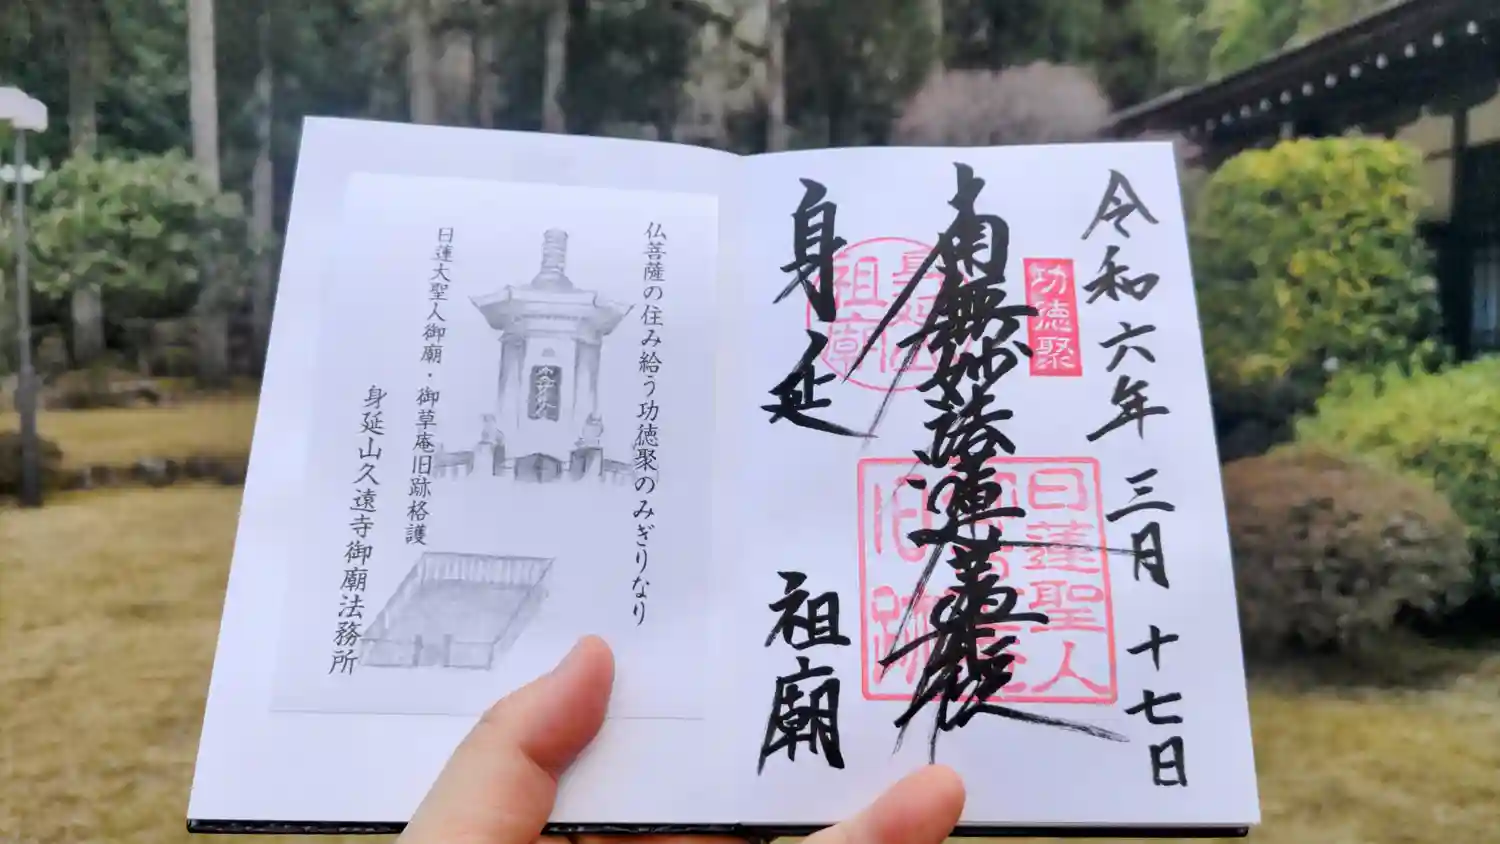 令和六年三月十七日
功徳聚
南無妙法蓮華経
日蓮聖人
旧跡
身延
祖廟
身延山
祖廟
仏菩薩の住み給う功徳聚のみぎりなり
日蓮大聖人御廟・御草庵旧跡格護
身延山久遠寺御廟法務所